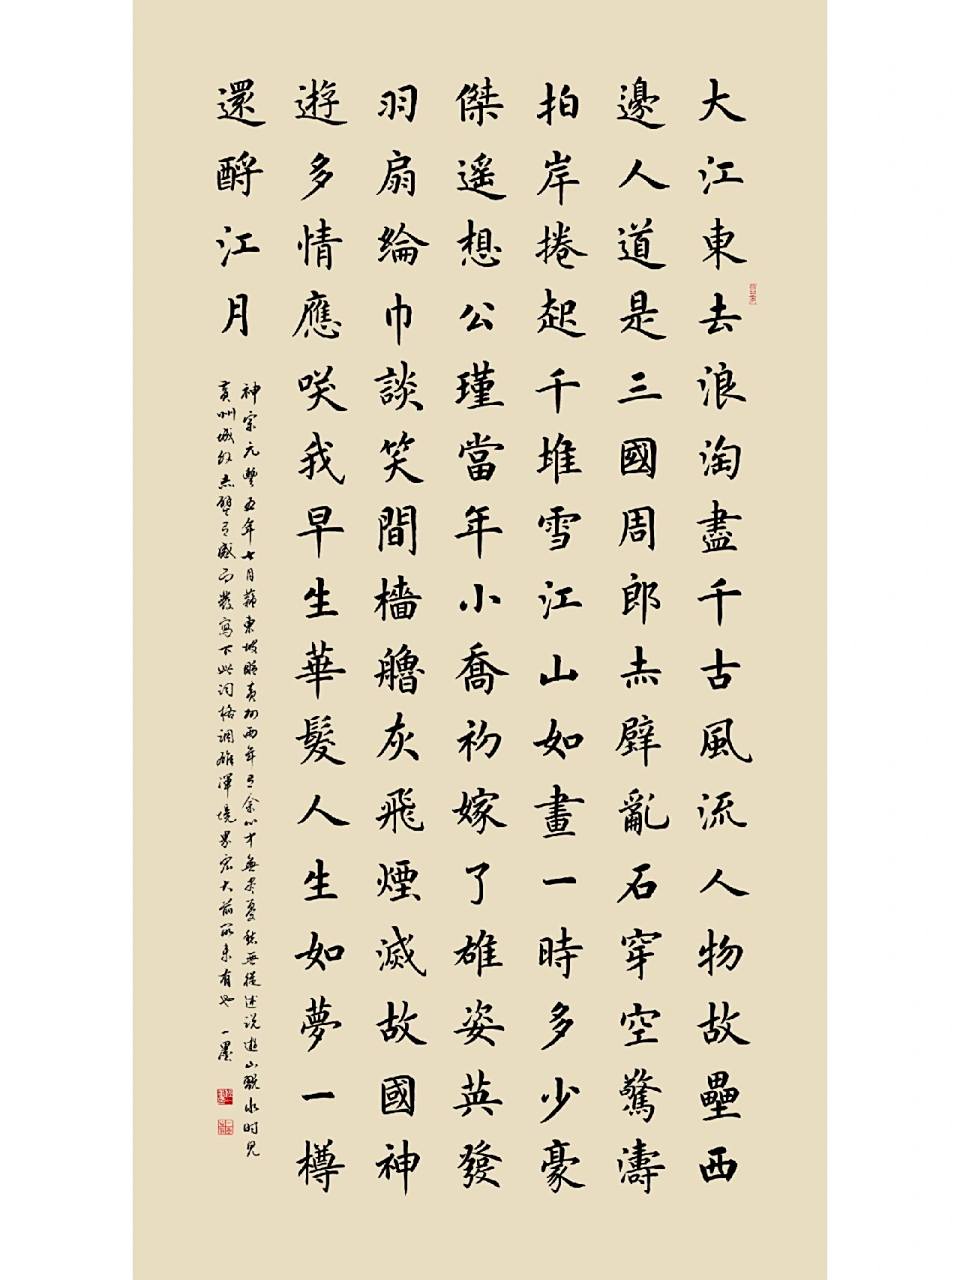 大江東去浪淘盡千古風流人物故壘西
邊人道是三國周郎赤壁亂石穿空驚濤
拍岸捲起千堆雪江山如畫一時多少豪
傑遙想公瑾當年小喬初嫁了雄姿英發
羽扇綸巾談笑間檣艣灰飛煙滅故國神
遊多情應咲我早生華髮人生如夢一樽
還酹江月
神宗元豐五年七月蘇東坡貶黃州兩年有余心中無尽憂愁無從述说遊山翫水时见
黃州城外赤壁有感而發寫下此词格調雄渾境界宏大前所未有也 一墨